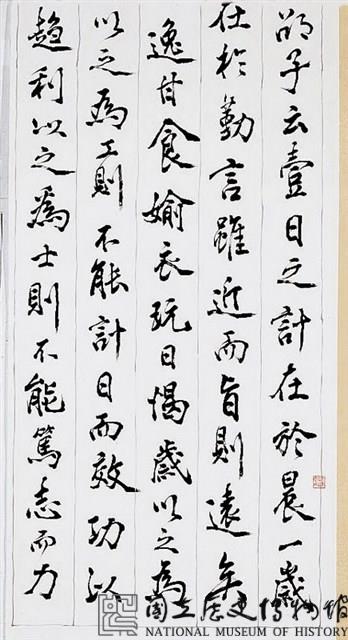 邵子云壹日之計在於晨一歲
在於勤言雖近而旨則遠無
逸甘食媮衣玩日愒歲以之為
以之為工則不能計日而效功以
趨利以之為士則不能篤志而力
國立歷史博物館
NATIONAL MUSEUM OF HISTORY